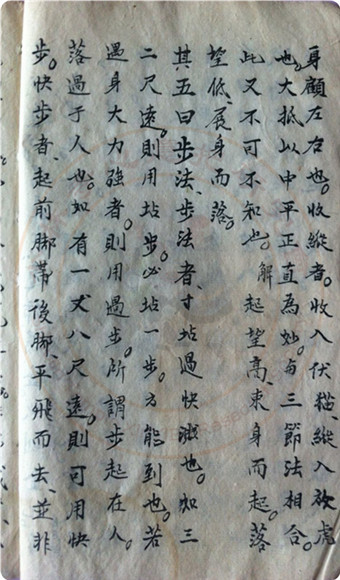 身顧左右也。收縱者。收入伏猫、縱入放虎
也。大抵以中平正直為妙。与三節法相合。
此又不可不知也。解起望高、束身而起。落
望低、展身而落。
其五曰步法、步法者、寸站過快濺也。如三
二尺遠。則用站步。必站一步。方能到也。若
遇身大力強者。則用過步。所謂步起在人。
落過于人也。如有一丈八尺遠。則可用快
步。快步者、起前脚帯後脚、平飛而去、並非